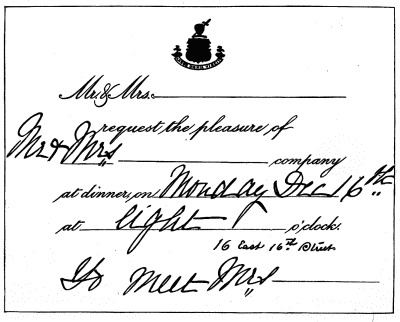 Mr. & Mrs.
request the pleasure of
Mr & Mrs company
at dinner, on Monday Dec 16th
at eight o'clock.
16 East 16th Street
To meet Mrs